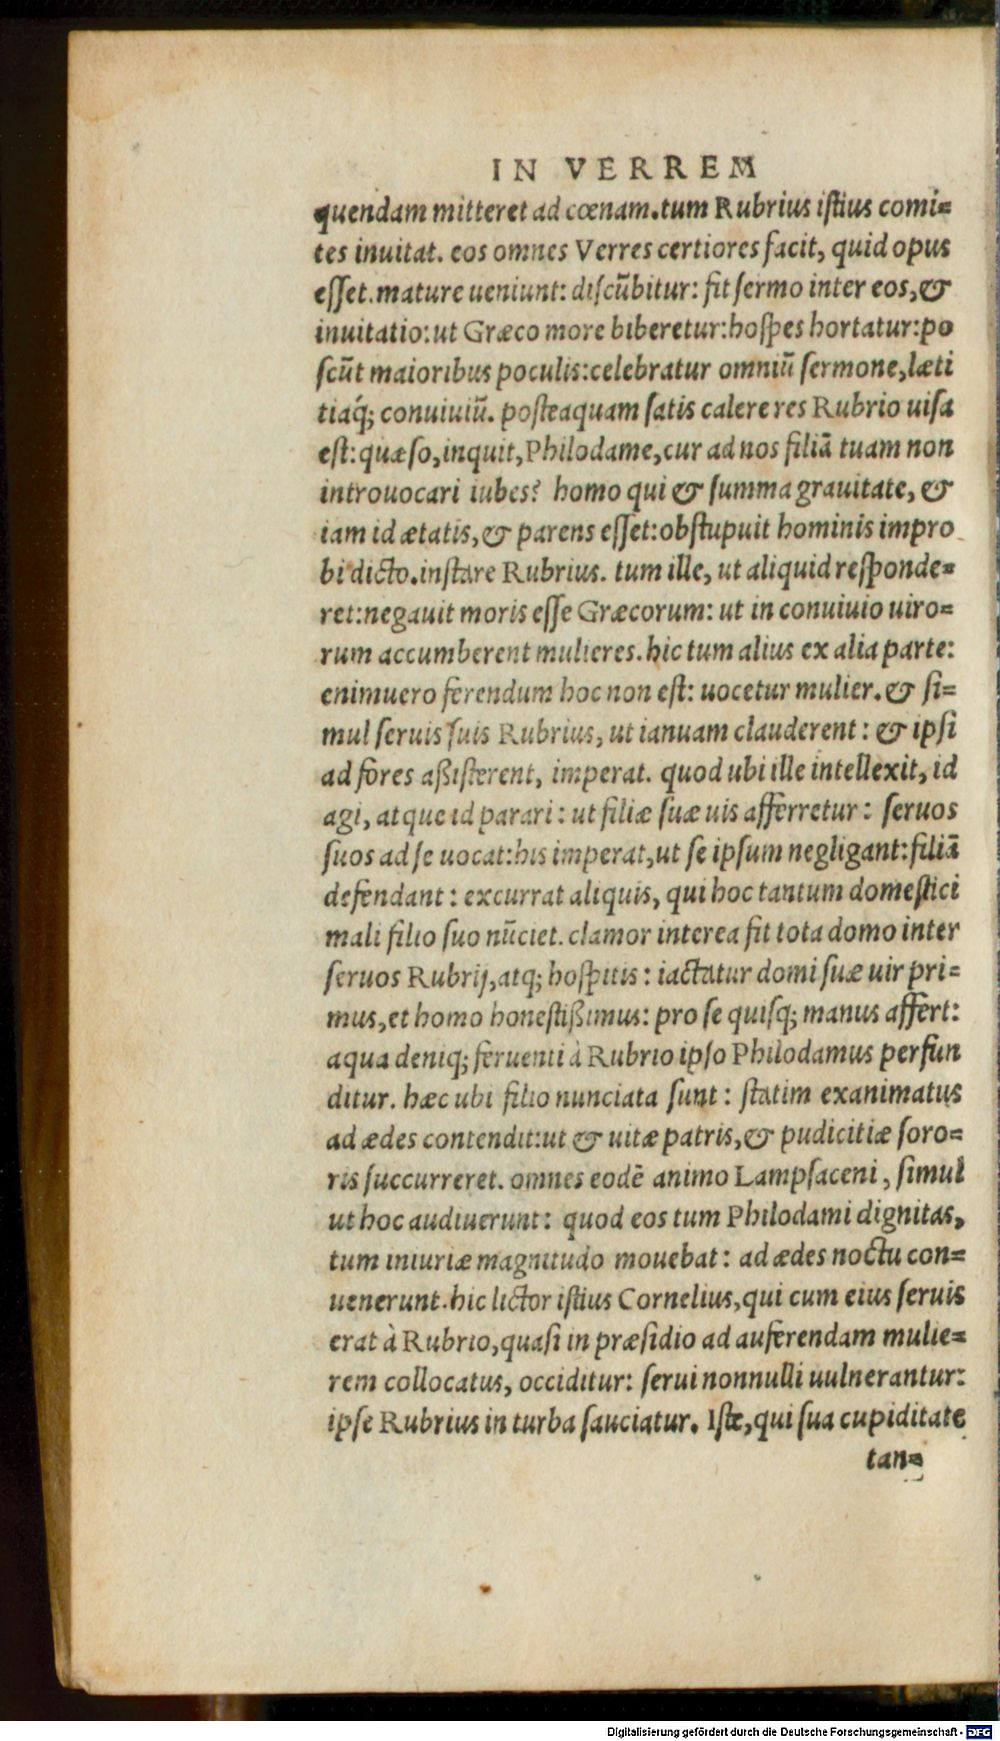 IN VERREM
quendam mitteret ad cœnam.tum Rubrius iſtius comi=
tes inuitat. eos omnes Verres certiores facit, quid opus
eſſet.mature ueniunt: diſcūbitur: fit ſermo inter eos,&
inuitatio:ut Græco more biberetur:hoſpes hortatur:po
ſcūt maioribus poculis:celebratur omniū ſermone,læti
tiaq́; conuiuiū. poſteaquam ſatis calere res Rubrio uiſa
eſt:quæſo,inquit,Philodame,cur ad nos filiā tuam non
introuocari iubes? homo qui & ſumma grauitate, &
iam id ætatis,& parens eſſet:obſtupuit hominis impro
bi dicto.inſtare Rubrius. tum ille, ut aliquid reſponde=
ret:negauit moris eſſe Græcorum: ut in conuiuio uiro=
rum accumberent mulieres.hic tum alius ex alia parte:
enimuero ferendum hoc non eſt: uocetur mulier.& ſi=
mul ſeruis ſuis Rubrius, ut ianuam clauderent: & ipſi
ad fores aßiſterent, imperat. quod ubi ille intellexit, id
agi, atque id parari: ut filiæ ſuæ uis afferretur: ſeruos
ſuos ad ſe uocat:his imperat,ut ſe ipſum negligant:filiā
defendant: excurrat aliquis, qui hoc tantum domeſtici
mali filio ſuo nūciet. clamor interea fit tota domo inter
ſeruos Rubrij,atq; hoſpitis: iactatur domi ſuæ uir pri=
mus,et homo honeſtißimus: pro ſe quiſq; manus affert:
aqua deniq; feruenti à Rubrio ipſo Philodamus perfun
ditur. hæc ubi filio nunciata ſunt: ſtatim exanimatus
ad ædes contendit:ut & uitæ patris,& pudicitiæ ſoro=
ris ſuccurreret. omnes eodē animo Lampſaceni, ſimul
ut hoc audiuerunt: quod eos tum Philodami dignitas,
tum iniuriæ magnitudo mouebat: ad ædes noctu con=
uenerunt.hic lictor iſtius Cornelius,qui cum eius ſeruis
erat à Rubrio,quaſi in præſidio ad auferendam mulie=
rem collocatus, occiditur: ſerui nonnulli uulnerantur:
ipſe Rubrius in turba ſauciatur. Iſte,qui ſua cupiditate
tan=
Digitalisierung gefördert durch die Deutsche Forschungsgemeinschaft - DFG